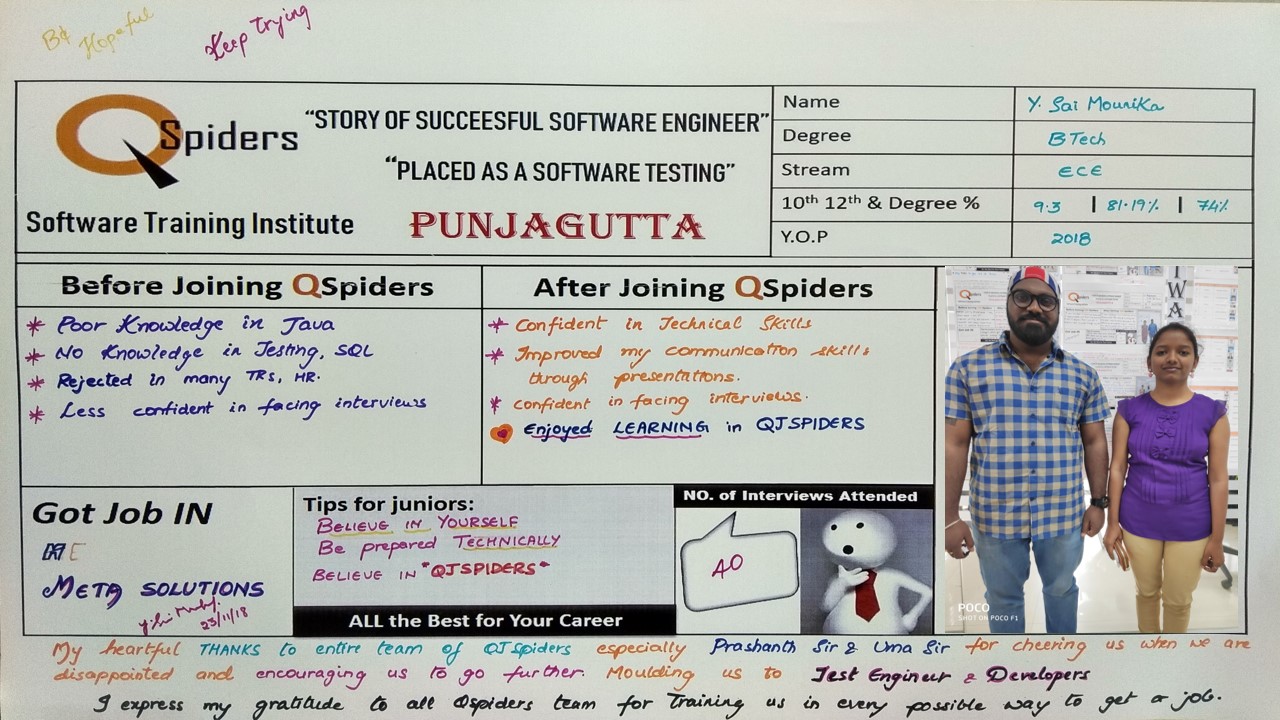 Be Hopeful
Keep trying
QSpiders
Software Training Institute
"STORY OF SUCCEESFUL SOFTWARE ENGINEER"
"PLACED AS A SOFTWARE TESTING"
PUNJAGUTTA
Name Y. Sai Mounika
Degree BTech
Stream ECE
10th 12th & Degree % 9.3 | 81.19% | 74%
Y.O.P 2018
Before Joining QSpiders
* Poor Knowledge in Java
* No Knowledge in Testing, SQL
* Rejected in many TRs, HR.
* Less confident in facing interviews
After Joining QSpiders
* Confident in Technical Skills
* Improved my communication skills
through presentations.
* confident in facing interviews.
Enjoyed LEARNING in QJSPIDERS
Got Job IN
META SOLUTIONS
23/11/18
Tips for juniors:
BELIEVE IN YOURSELF
Be prepared TECHNICALLY
BELIEVE IN "QJSPIDERS"
ALL the Best for Your Career
NO. of Interviews Attended
40
QSpiders
WA
POCO
SHOT ON POCO F1
My heartful THANKS to entire team of QJSpiders especially Prashanth Sir & Uma Sir for cheering us when we are
disappointed and encouraging us to go further. Moulding us to Test Engineer & Developers
I express my gratitude to all Qspiders team for Training us in every possible way to get a job.